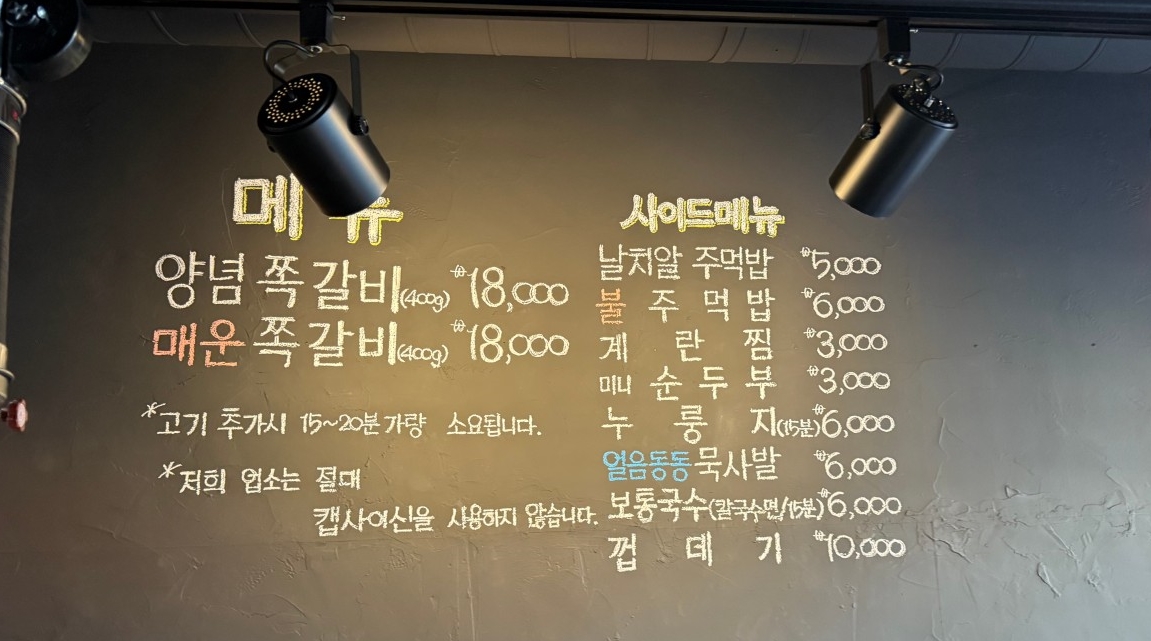 메뉴
양념 쪽갈비(400g) ₩18,000
매운 쪽갈비(400g) ₩18,000
*고기 추가시 15~20분 가량 소요됩니다.
*저희 업소는 절대
캡사이신을 사용하지 않습니다.
사이드메뉴
날치알 주먹밥 ₩5,000
불주먹밥 ₩6,000
계란찜 ₩3,000
미니 순두부 ₩3,000
누룽지(15분) ₩6,000
얼음동동 묵사발 ₩6,000
보통국수(칼국수면/15분) ₩6,000
껍데기 ₩10,000